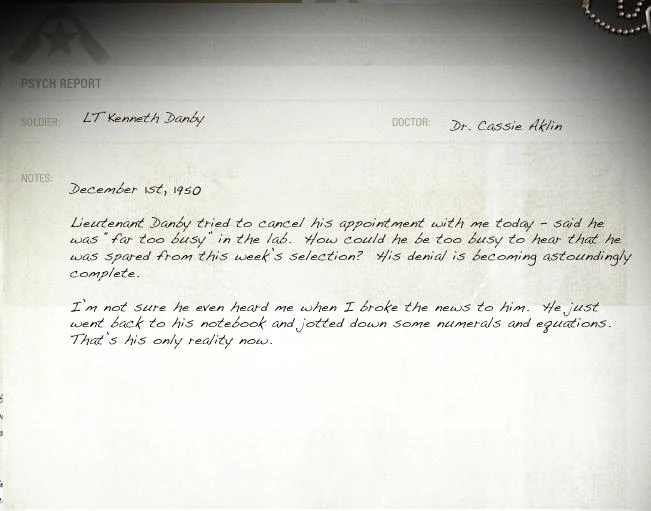 PSYCH REPORT
SOLDIER: LT Kenneth Danby DOCTOR: Dr. Cassie Aklin
NOTES:
December 1st, 1950
Lieutenant Danby tried to cancel his appointment with me today - said he
was "far too busy" in the lab. How could he be too busy to hear that he
was spared from this week's selection? His denial is becoming astoundingly
complete.
I'm not sure he even heard me when I broke the news to him. He just
went back to his notebook and jotted down some numerals and equations.
That's his only reality now.